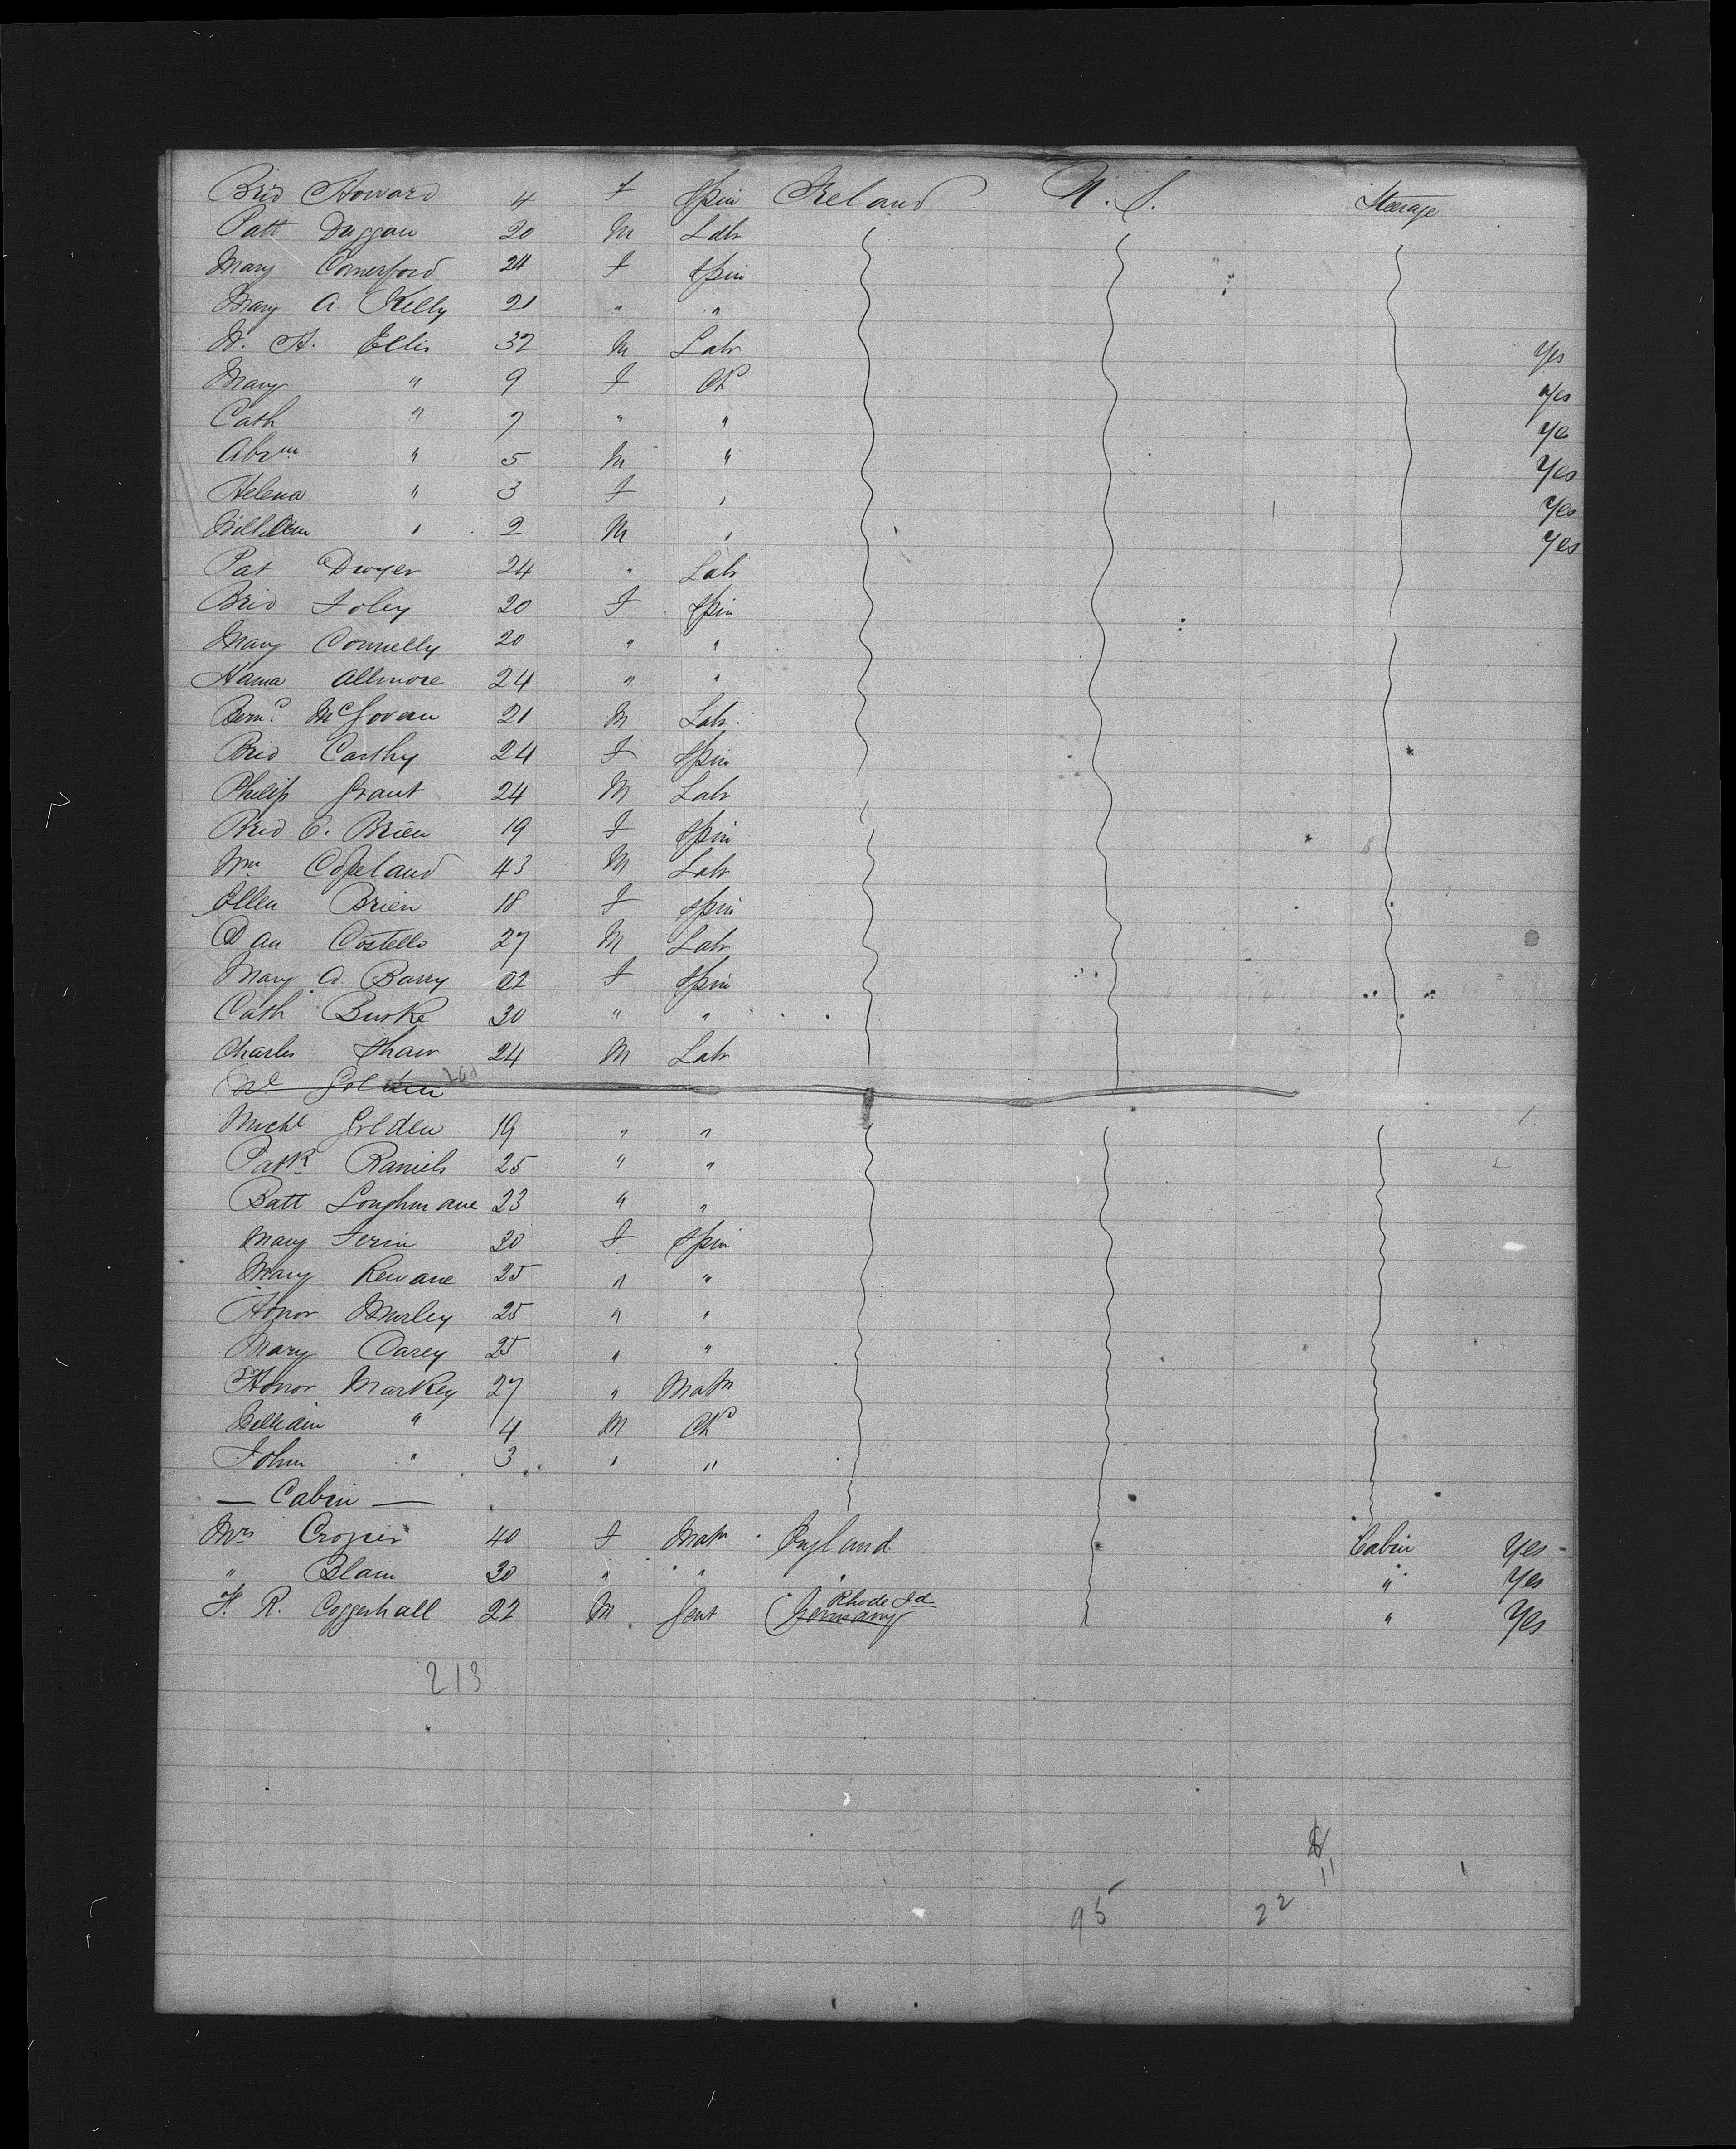 Brid Howard 4 F Spin Ireland U. S. Steerage
Patt Duggan 20 M Labr
Mary Comerford 24 F Spin
Mary A. Kelly 21 " "
W. H. Ellis 32 M Labr Yes
Mary " 9 F Chd Yes
Cath " 7 " " Yes
Abrm " 5 M " Yes
Helena " 3 F " Yes
William " 2 M " Yes
Pat Dwyer 24 " Labr
Brid Foley 20 F Spin
Mary Connelly 20 " "
Hanna Allmore 24 " "
Bernd McGovern 21 M Labr
Brid Carthy 24 F Spin
Philip Grant 24 M Labr
Brid O. Brien 19 F Spin
Wm Copeland 43 M Labr
Ellen Brien 18 F Spin
Dan Costello 27 M Labr
Mary A. Barry 22 F Spin
Cath Burke 30 " "
Charles Shaw 24 M Labr
Golden
Michl Golden 19 " "
Patk Raniels 25 " "
Batt Loughmane 23 " "
Mary Ferin 30 F Spin
Mary Kewane 25 " "
Honor Murley 25 " "
Mary Carey 25 " "
Honor Markey 27 " Matn
William " 4 M Chd
John " 3 " "
— Cabin —
Mrs Crozier 40 F Matn England Cabin Yes
" Blain 30 " " " " Yes
F. R. Coggeshall 22 M Gent Germany Rhode Id " Yes
213
11
95 22